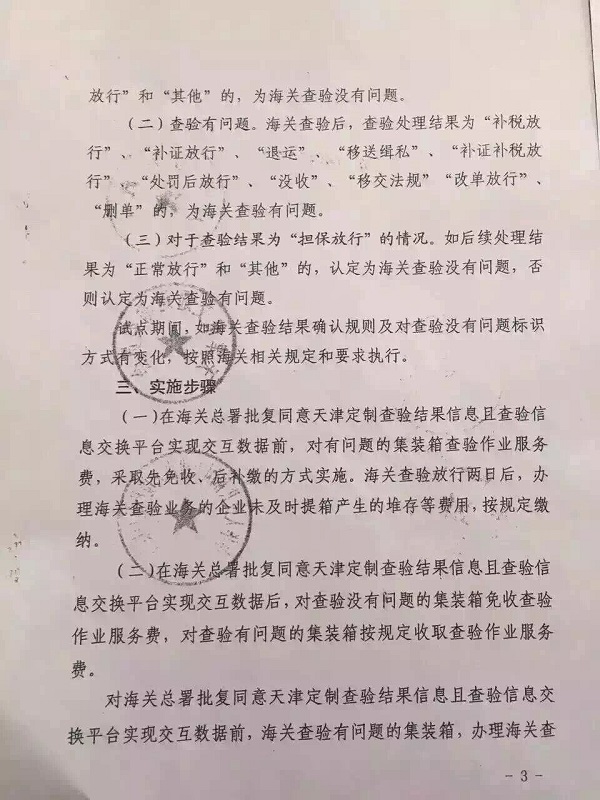 放行”和“其他”的，为海关查验没有问题。
（二）查验有问题。海关查验后，查验处理结果为“补税放
行”、“补证放行”、“退运”、“移送缉私”、“补证补税放
行”、“处罚后放行”、“没收”、“移交法规”“改单放行”、
“删单”的，为海关查验有问题。
（三）对于查验结果为“担保放行”的情况。如后续处理结
果为“正常放行”和“其他”的，认定为海关查验没有问题，否
则认定为海关查验有问题。
试点期间，如海关查验结果确认规则及对查验没有问题标识
方式有变化，按照海关相关规定和要求执行。
三、实施步骤
（一）在海关总署批复同意天津定制查验结果信息且查验信
息交换平台实现交互数据前，对有问题的集装箱查验作业服务
费，采取先免收、后补缴的方式实施。海关查验放行两日后，办
理海关查验业务的企业未及时提箱产生的堆存等费用，按规定缴
纳。
（二）在海关总署批复同意天津定制查验结果信息且查验信
息交换平台实现交互数据后，对查验没有问题的集装箱免收查验
作业服务费，对查验有问题的集装箱按规定收取查验作业服务
费。
对海关总署批复同意天津定制查验结果信息且查验信息交
换平台实现交互数据前，海关查验有问题的集装箱，办理海关查
- 3 -